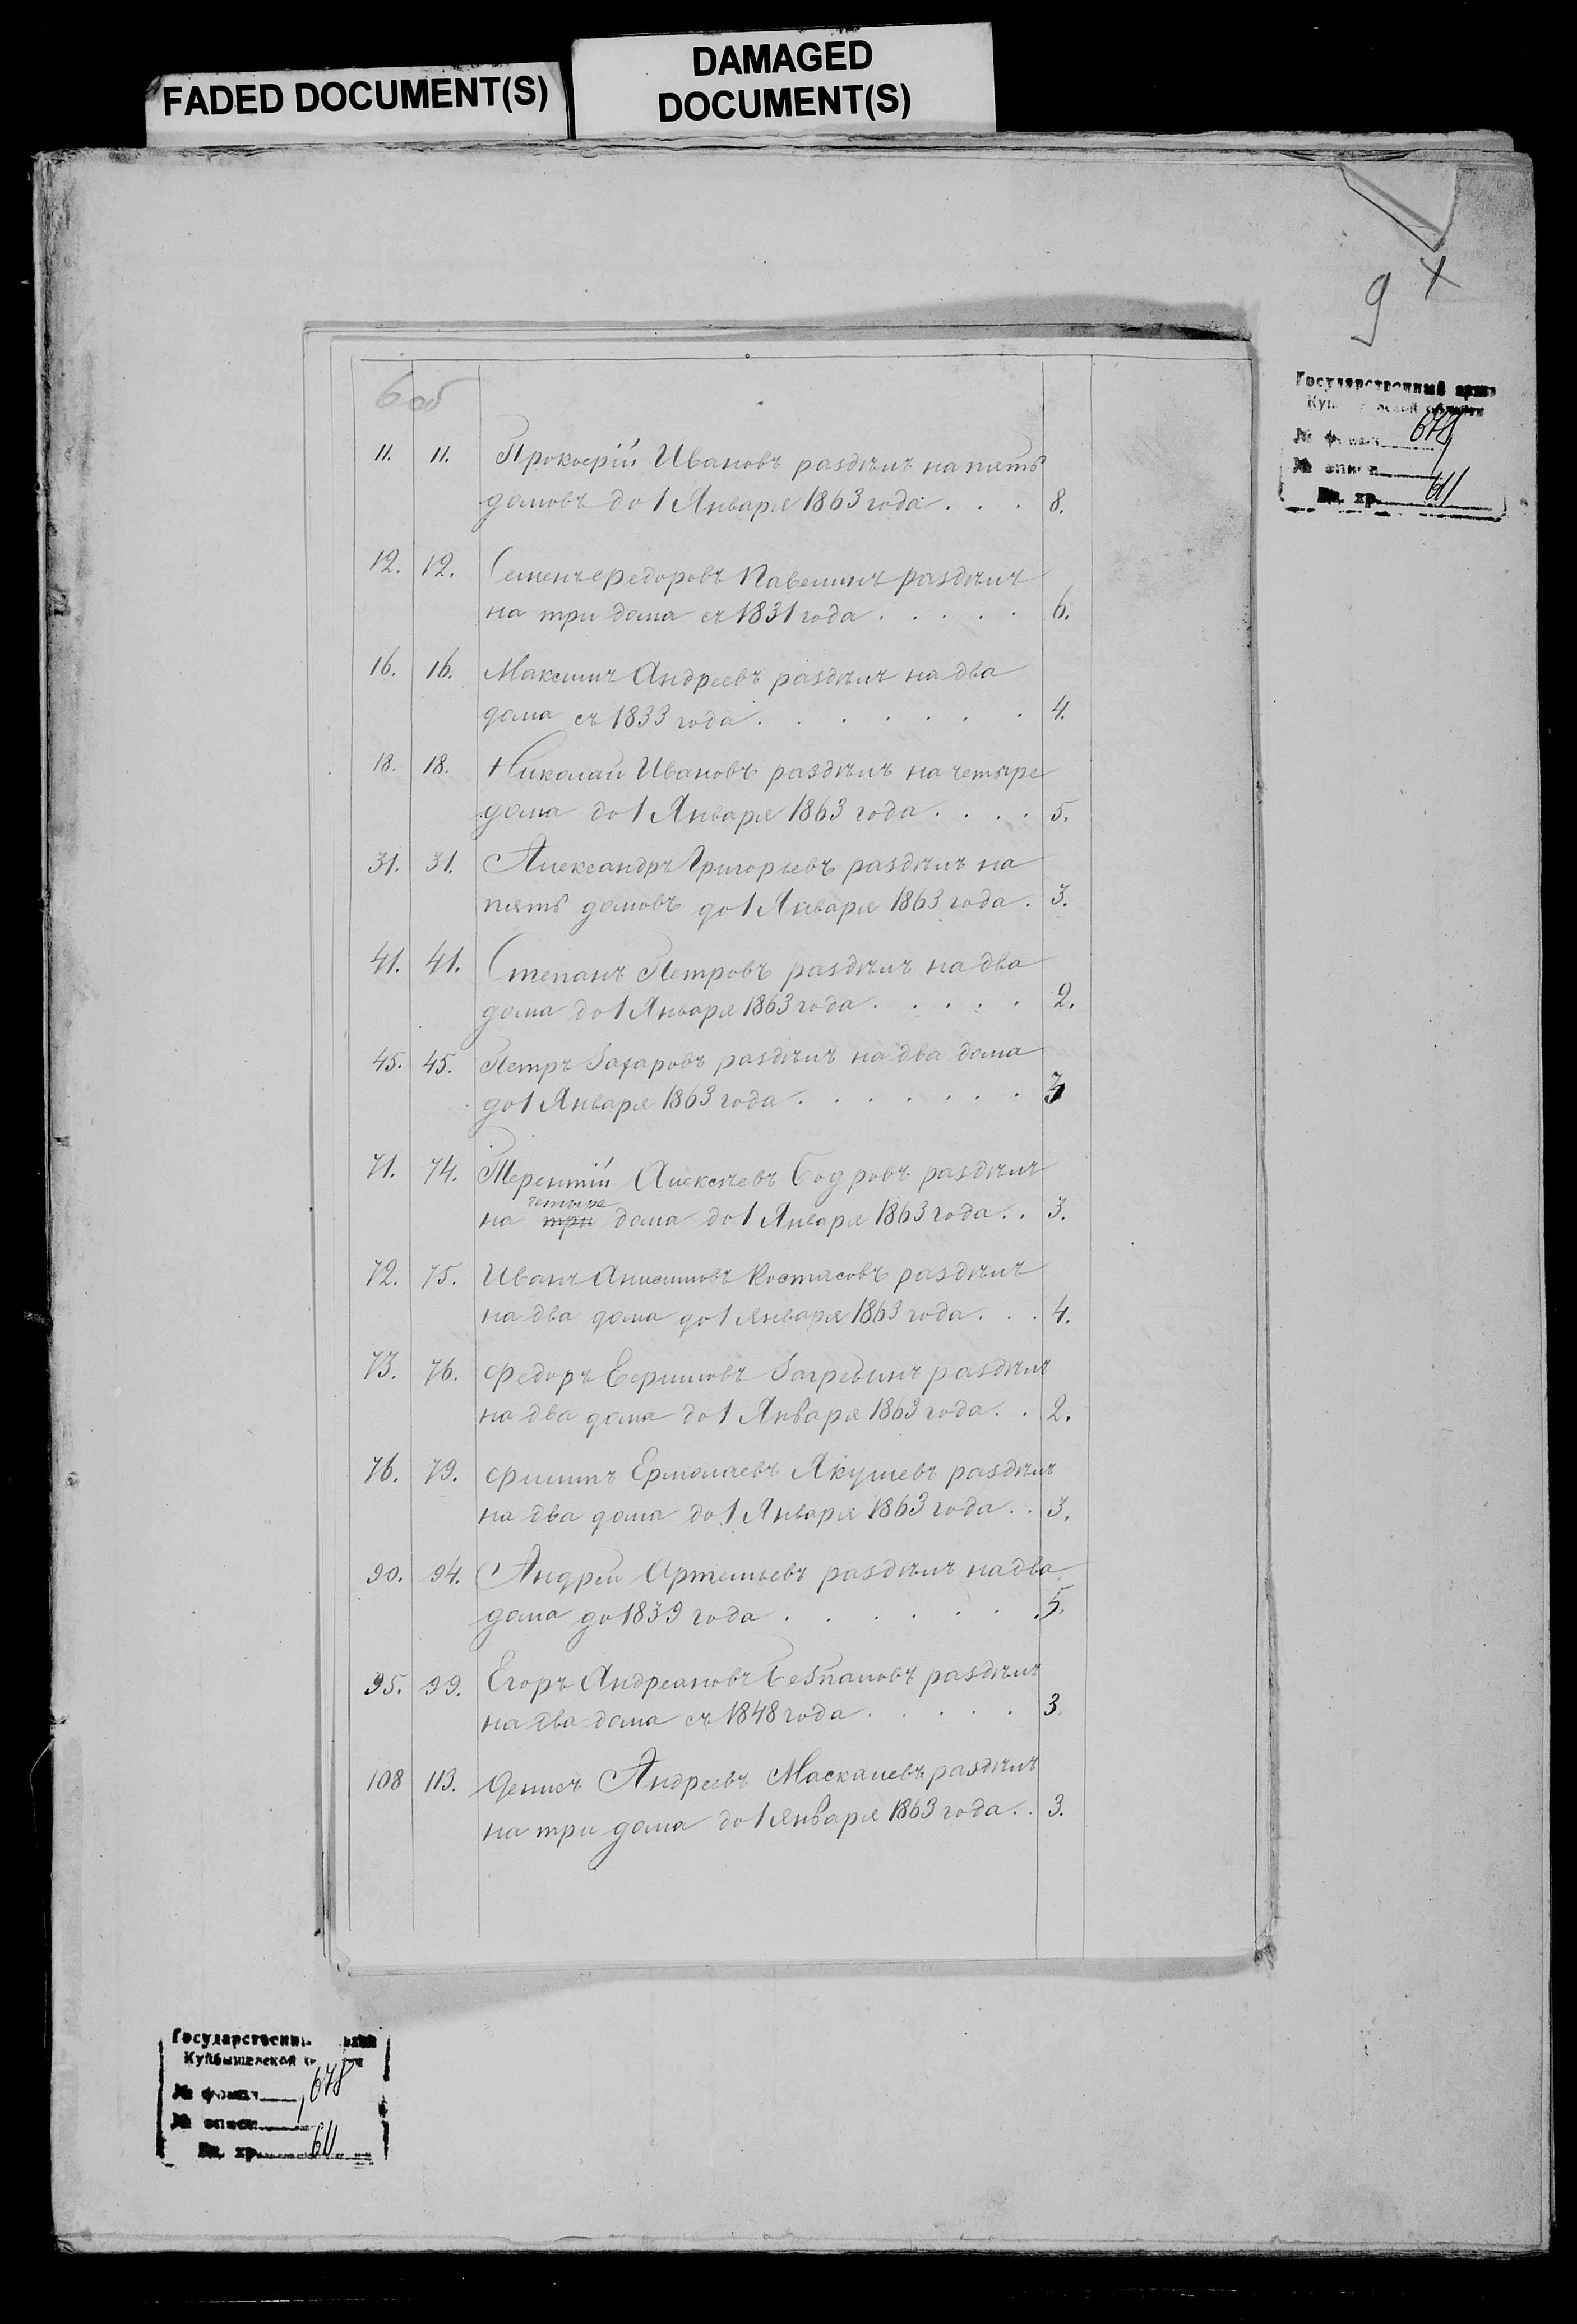 FADED DOCUMENT(S)
DAMAGED
DOCUMENT(S)
9 X
Государственный архив
№ фонда 678
№ описи 1
Ед. хр. 611
6 об
11. 11. Прокофій Ивановъ раздѣлъ на пять
домовъ до 1 Января 1863 года . . . 8.
12. 12. Семенъ Федоровъ Павелинъ раздѣлъ
на три дома съ 1831 года . . . . . 6.
16. 16. Максимъ Андреевъ раздѣлъ на два
дома съ 1833 года . . . . . . . 4.
18. 18. Николай Ивановъ раздѣлъ на четыре
дома до 1 Января 1863 года . . . . 5.
31. 31. Александръ Григорьевъ раздѣлъ на
пять домовъ до 1 Января 1863 года . 3.
41. 41. Степанъ Петровъ раздѣлъ на два
дома до 1 Января 1863 года . . . . . 2.
45. 45. Петръ Захаровъ раздѣлъ на два дома
до 1 Января 1863 года . . . . . . .
71. 74. Терентій Алексѣевъ Бодровъ раздѣлъ
четыре
на три дома до 1 Января 1863 года . . 3.
72. 75. Иванъ Анисимовъ Костясовъ раздѣлъ
на два дома до 1 Января 1863 года . . . 4.
73. 76. Федоръ Ефимовъ Загребинъ раздѣлъ
на два дома до 1 Января 1863 года . . 2.
76. 79. Филипъ Ермолаевъ Якушевъ раздѣлъ
на два дома до 1 Января 1863 года . . 3.
90. 94. Андрей Артемьевъ раздѣлъ на два
дома до 1839 года . . . . . . . 5.
95. 99. Егоръ Андреановъ Безпаловъ раздѣлъ
на два дома съ 1848 года . . . . . 3
108 113. Денисъ Андреевъ Маскалевъ раздѣлъ
на три дома до 1 Января 1863 года . . 3.
Государственный архив
Куйбышевской области
№ фонда 678
№ описи 1
Ед. хр. 611